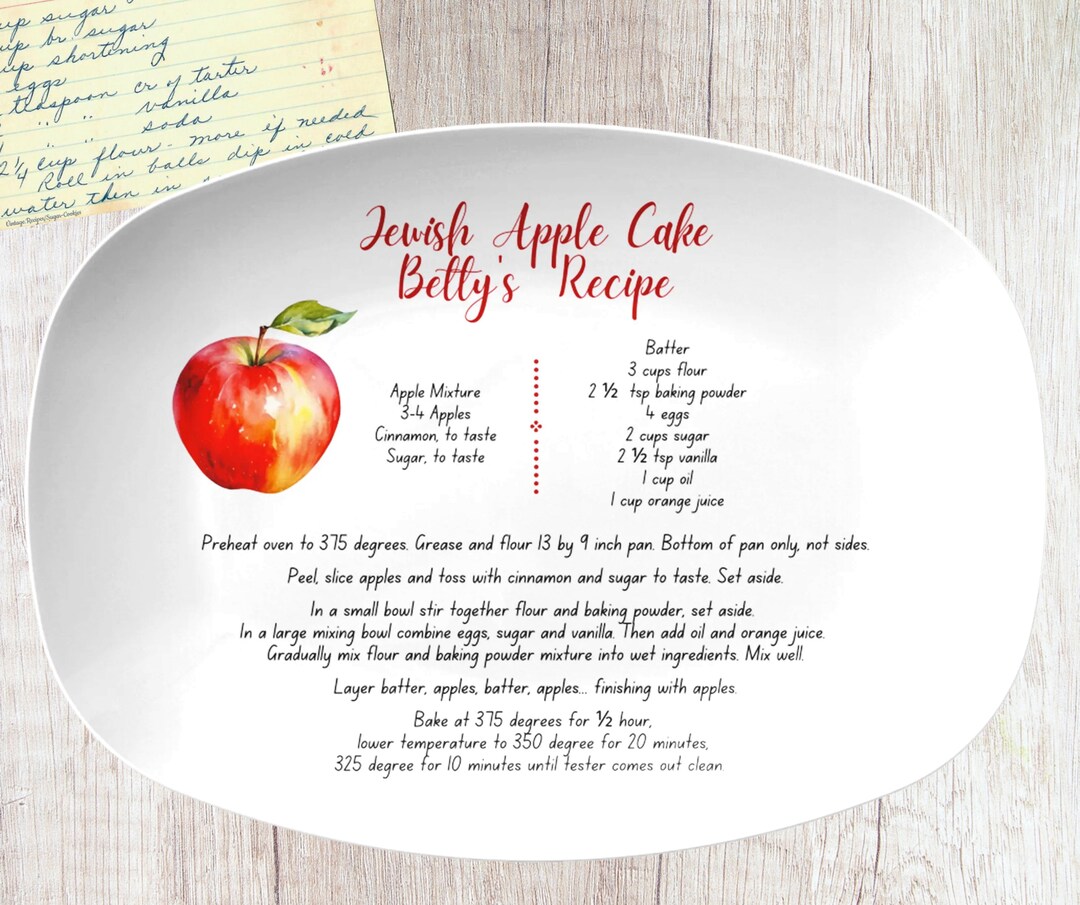 cup sugar
up br. sugar
up shortening
eggs
teaspoon cr of tarter
" " vanilla
" " soda
2 1/4 cup flour - more if needed
Roll in balls dip in cold
water then in
Vintage.Recipes/Sugar-Cookies
Jewish Apple Cake
Betty's Recipe
Apple Mixture
3-4 Apples
Cinnamon, to taste
Sugar, to taste
Batter
3 cups flour
2 ½ tsp baking powder
4 eggs
2 cups sugar
2 ½ tsp vanilla
1 cup oil
1 cup orange juice
Preheat oven to 375 degrees. Grease and flour 13 by 9 inch pan. Bottom of pan only, not sides.
Peel, slice apples and toss with cinnamon and sugar to taste. Set aside.
In a small bowl stir together flour and baking powder, set aside.
In a large mixing bowl combine eggs, sugar and vanilla. Then add oil and orange juice.
Gradually mix flour and baking powder mixture into wet ingredients. Mix well.
Layer batter, apples, batter, apples... finishing with apples.
Bake at 375 degrees for ½ hour,
lower temperature to 350 degree for 20 minutes,
325 degree for 10 minutes until tester comes out clean.